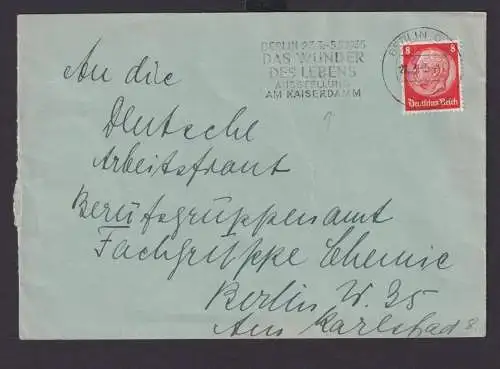 BERLIN 23.3.-5.5.1935
DAS WUNDER
DES LEBENS
AUSSTELLUNG
AM KAISERDAMM
BERLIN
8 8
Deutsches Reich
An die
Deutsche
Arbeitsfront
Berufsgruppenamt
Fachgruppe Chemie
Berlin W. 35
Am Karlsbad 8